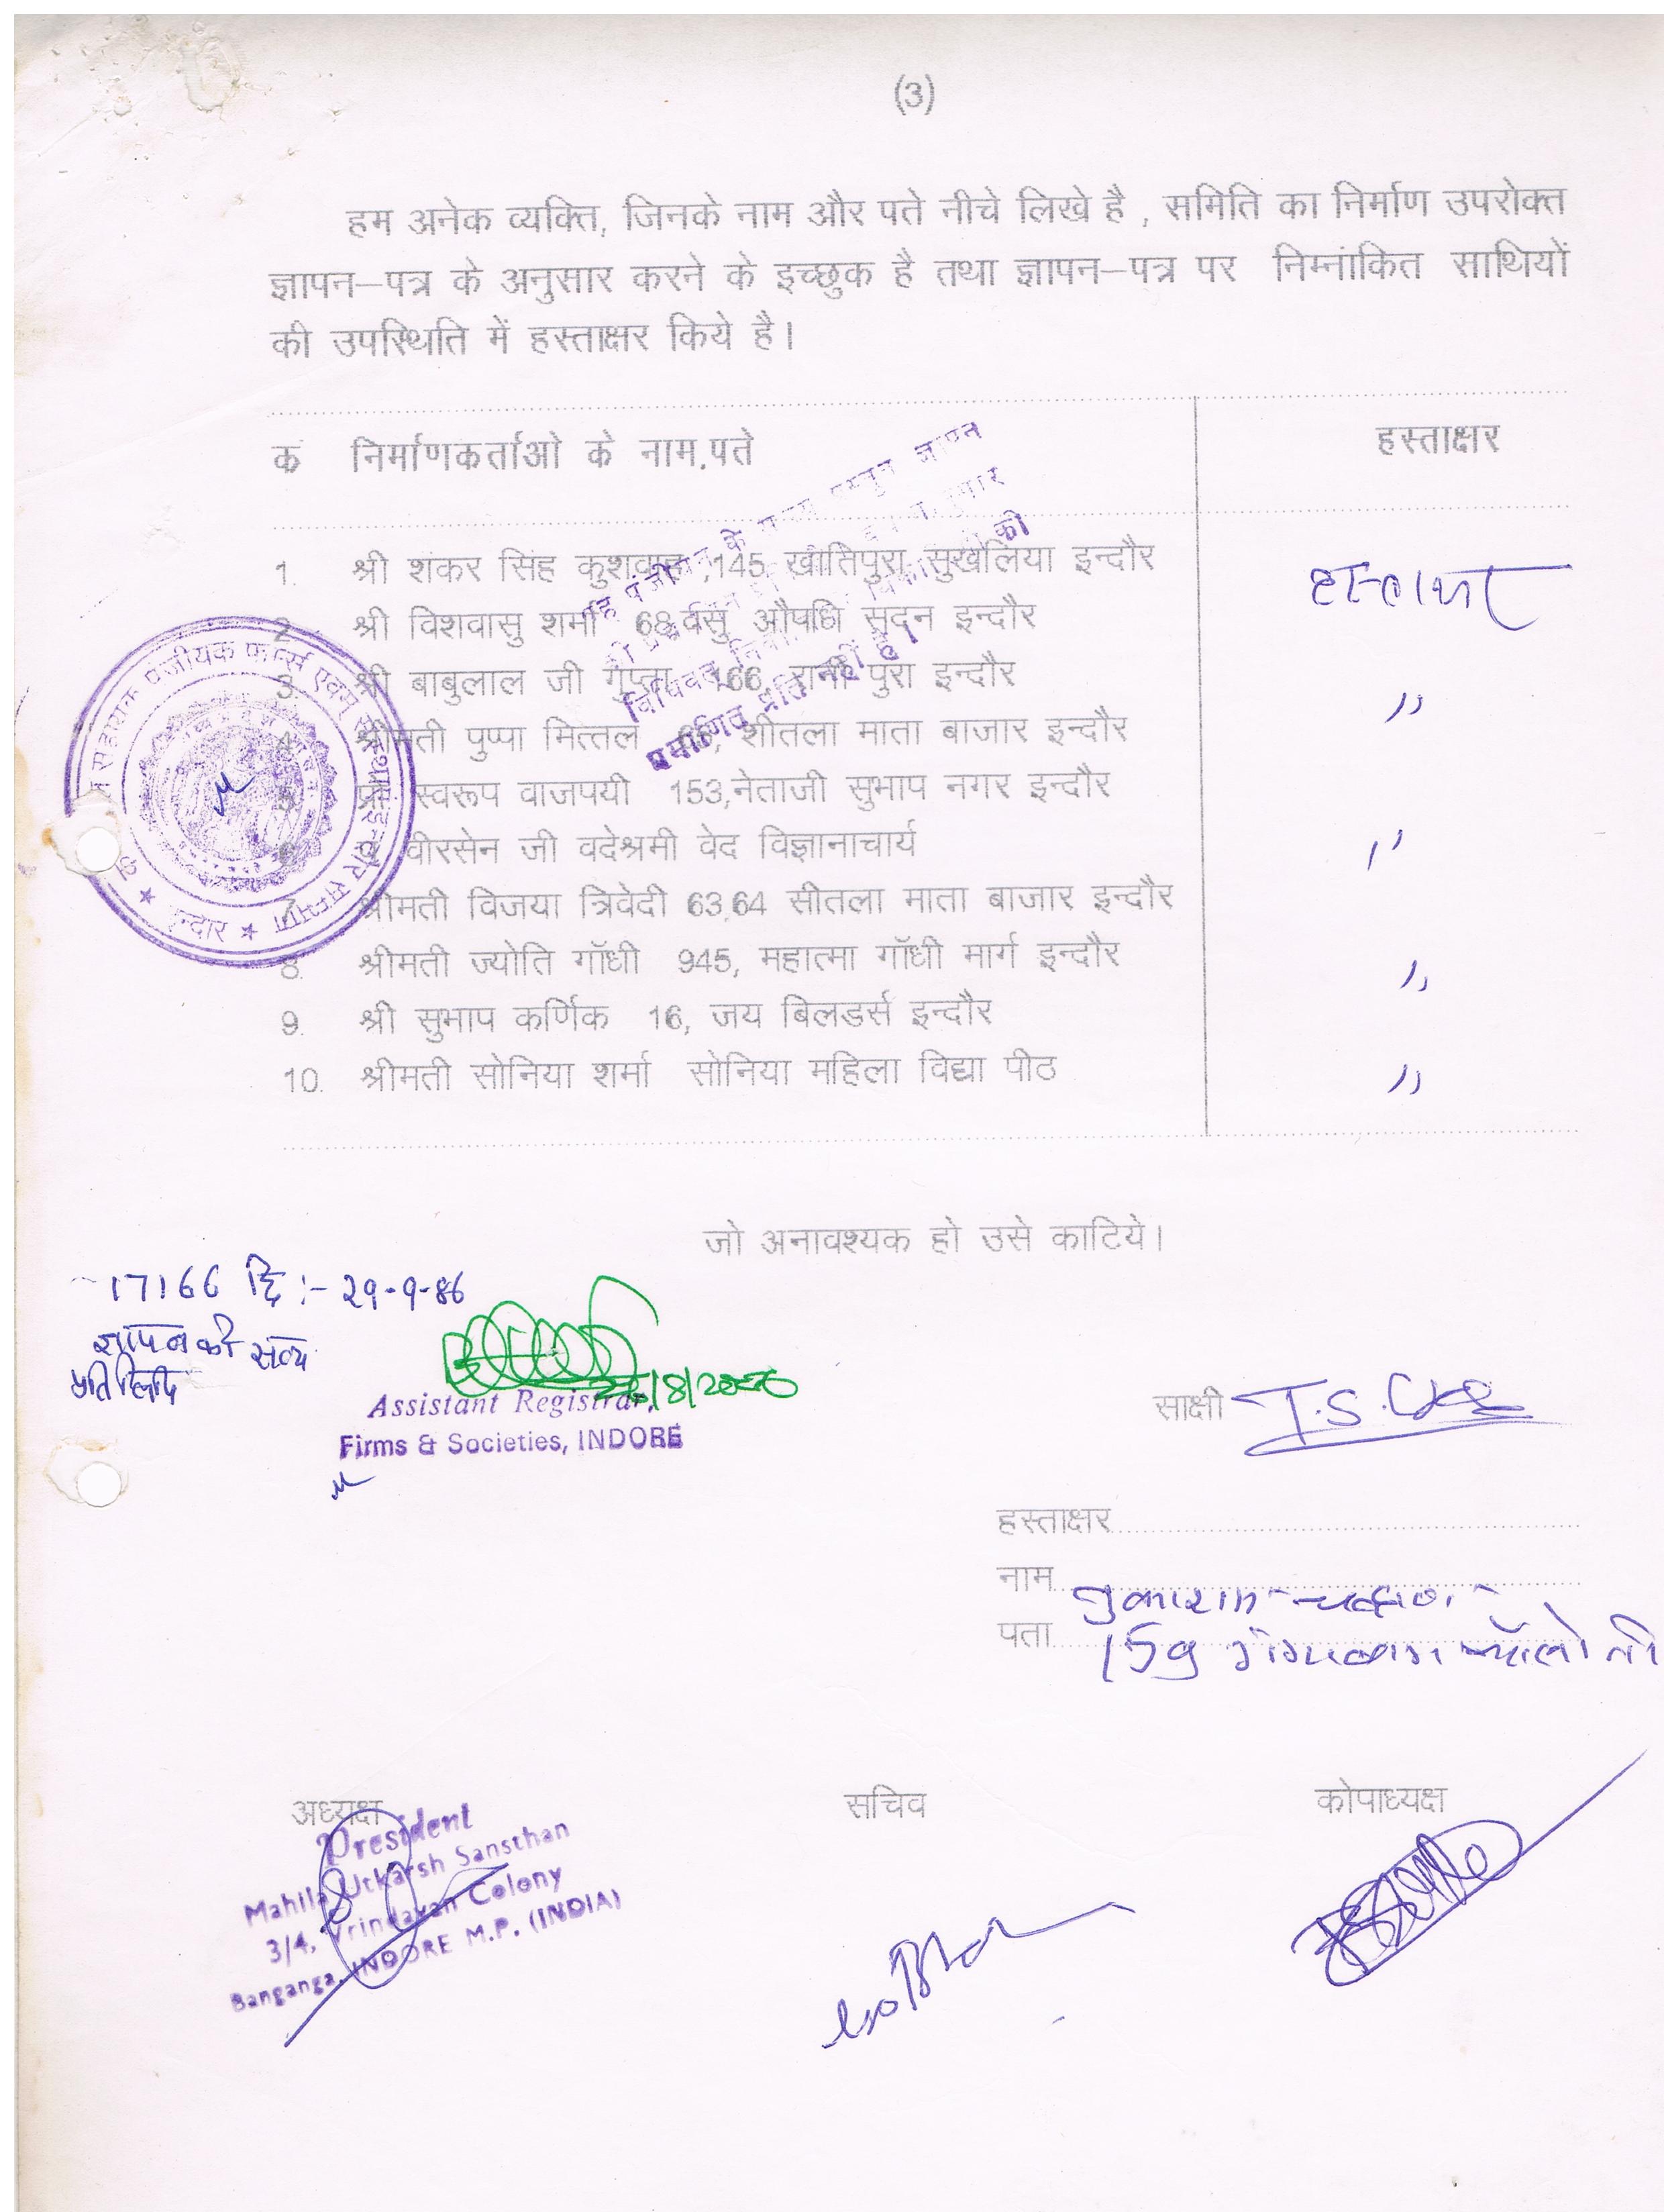 (3)
हम अनेक व्यक्ति, जिनके नाम और पते नीचे लिखे है , समिति का निर्माण उपरोक्त
ज्ञापन–पत्र के अनुसार करने के इच्छुक है तथा ज्ञापन–पत्र पर निम्नांकित साथियों
की उपस्थिति में हस्ताक्षर किये है।
क निर्माणकर्ताओ के नाम.पते हस्ताक्षर
1. श्री शंकर सिंह कुशवाह ,145 खातिपुरा सुखलिया इन्दौर हस्ताक्षर
2. श्री विशवासु शर्मा 68,र्वसु औषधि सदन इन्दौर
3. श्री बाबुलाल जी गुप्ता 166, रानी पुरा इन्दौर ,,
4. श्रीमती पुष्पा मित्तल शीतला माता बाजार इन्दौर
5. स्वरूप वाजपयी 153,नेताजी सुभाष नगर इन्दौर
6. वीरसेन जी वदेश्रमी वेद विज्ञानाचार्य ,,
7. श्रीमती विजया त्रिवेदी 63,64 सीतला माता बाजार इन्दौर
8. श्रीमती ज्योति गॉधी 945, महात्मा गॉधी मार्ग इन्दौर ,,
9. श्री सुभाष कर्णिक 16, जय बिलडर्स इन्दौर
10. श्रीमती सोनिया शर्मा सोनिया महिला विद्या पीठ ,,
जो अनावश्यक हो उसे काटिये।
17166 दि :- 29-9-86
ज्ञापन की सत्य
प्रतिलिपि
Assistant Registrar,
Firms & Societies, INDORE
साक्षी T.S.
हस्ताक्षर
नाम तुकाराम चव्हाण
पता 159 गंगाबाग कॉलोनी
अध्यक्ष सचिव कोषाध्यक्ष
President
Mahila Utkarsh Sansthan
3/4, Vrindavan Colony
Banganga, INDORE M.P. (INDIA)